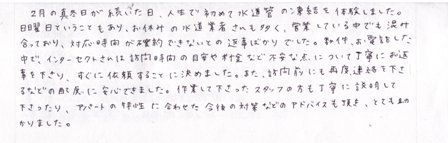 2月の真冬日が続いた日、人生で初めて水道管の凍結を体験しました。
日曜日ということもあり、お休みの水道業者さんも多く、営業している中でも混み
合っており、対応時間が確約できないとの返事ばかりでした。数件、お電話した
中で、インターセクトさんは訪問時間の目安や料金など不安な点について丁寧にお返
事を下さり、すぐに依頼することに決めました。また、訪問前にも再度連絡を下さ
るなどの配慮に安心できました。作業して下さったスタッフの方も丁寧に説明して
下さったり、アパートの特性に合わせた今後の対策などのアドバイスも頂き、とても助
かりました。